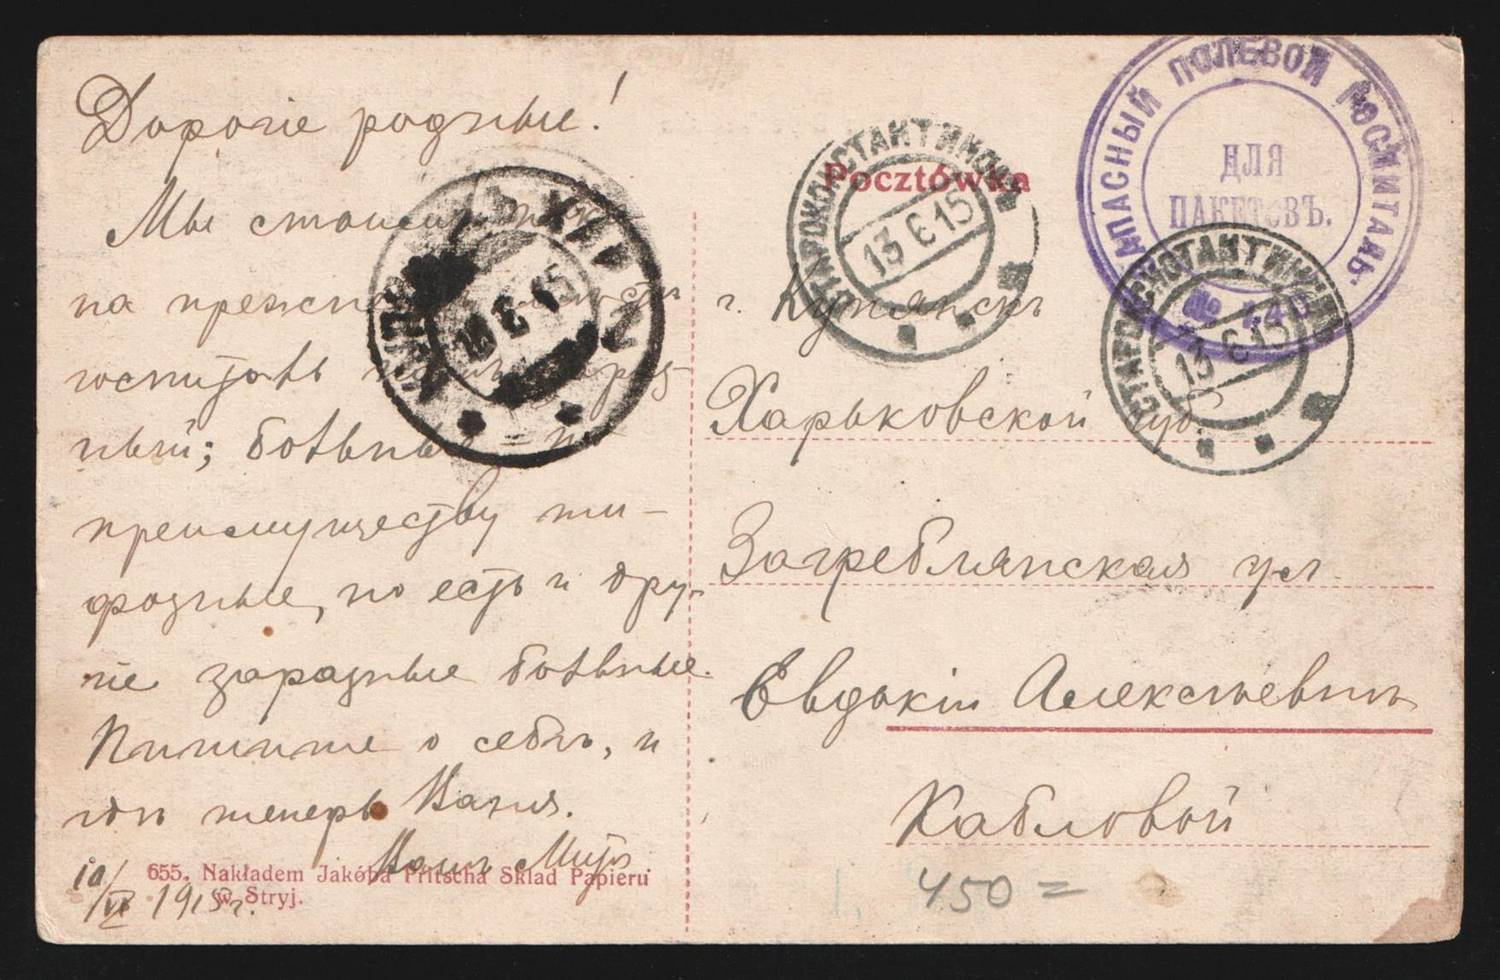 Дорогіе родные!
Мы стоимъ
на прежнемъ
госпиталь
ный; больные
преимуществу ти-
фозные, но есть и дру-
гіе заразные больные.
Пишите о себѣ, и
гдѣ теперь Ваня.
Вашъ Митя
10/VI 1915 г.
655. Nakładem Jakóba Fritscha Skład Papieru
w Stryj.
Pocztówka
г. Купянскъ
Харьковской губ.
Загреблянская ул.
Евдокіи Алексѣевнѣ
Кабловой
450 =
ЗАПАСНЫЙ ПОЛЕВОЙ ГОСПИТАЛЬ
ДЛЯ
ПАКЕТОВЪ.
№
СТАРОКОНСТАНТИНОВЪ
13 6 15
СТАРОКОНСТАНТИНОВЪ
13 6 15
6 15